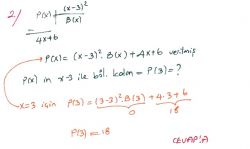 2/ P(x) | (x-3)²
B(x)
4x+6
P(x) = (x-3)². B(x) + 4x+6 verilmiş
P(x) in x-3 ile böl. kalan = P(3) = ?
x=3 için P(3) = (3-3)². B(3) + 4.3+6
0 18
P(3) = 18
CEVAP: A